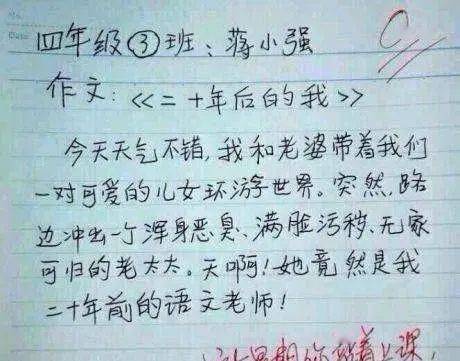 四年级③班：蒋小强
作文：《二十年后的我》
今天天气不错，我和老婆带着我们
一对可爱的儿女环游世界。突然，路
边冲出一个浑身恶臭、满脸污秽、无家
可归的老太太。天啊！她竟然是我
二十年前的语文老师！
C
着上课，